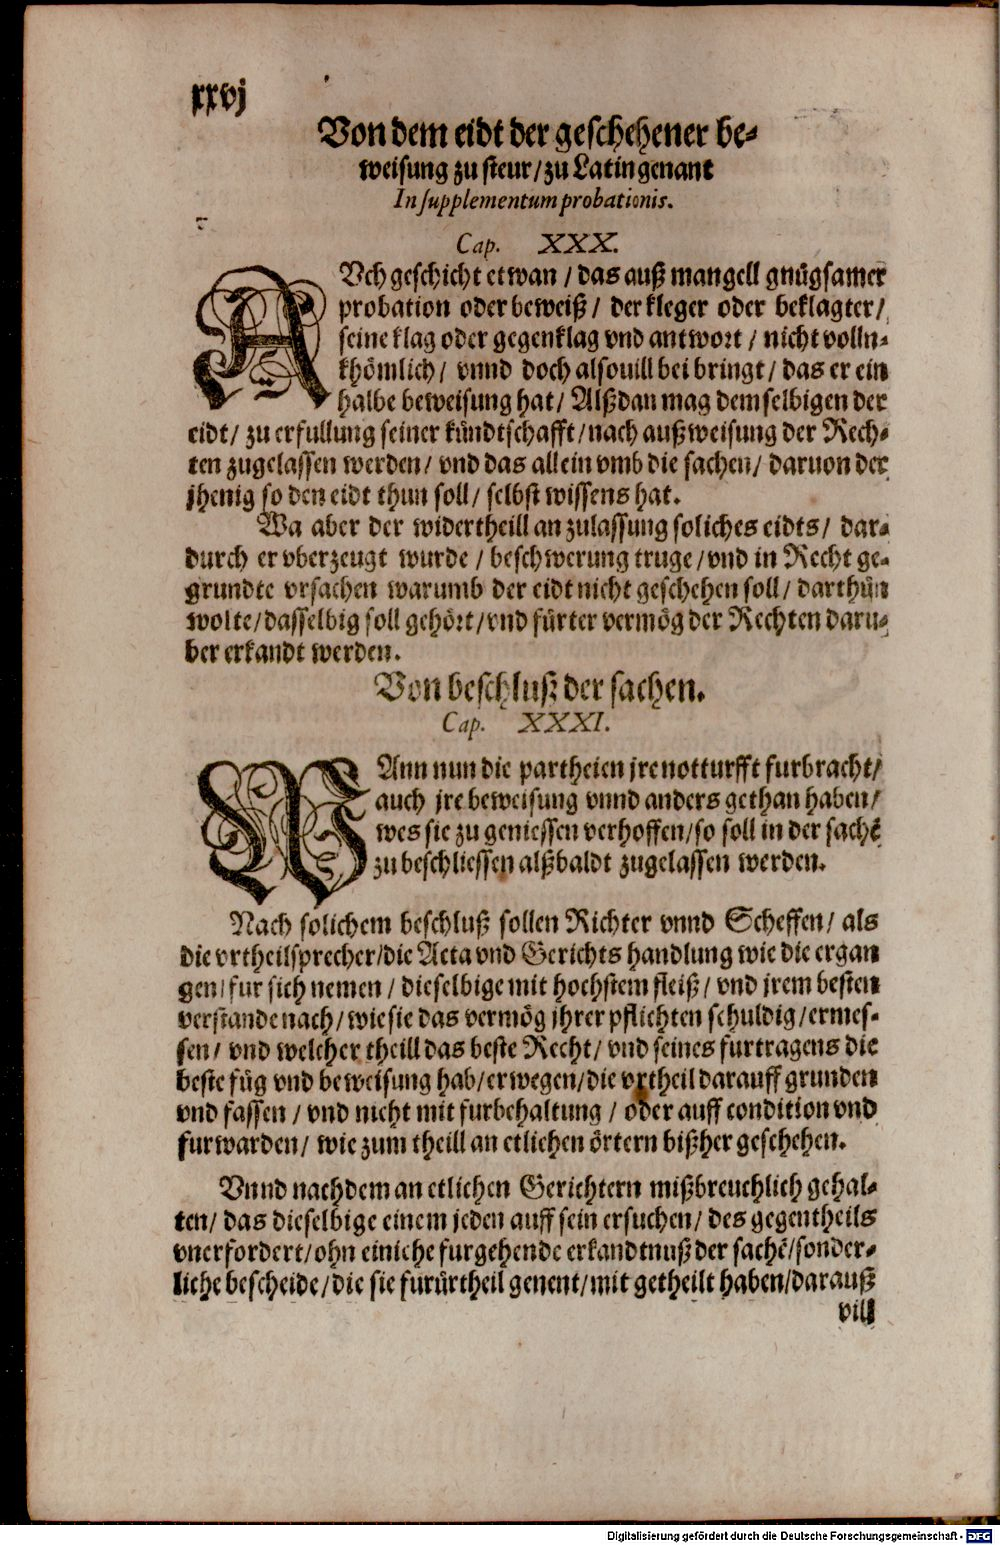 xxvj
Von dem eidt der geschehener be-
weisung zu steur/ zu Latin genant
In supplementum probationis.
Cap. XXX.
AVch geschicht etwan / das auß mangell gnügsamer
probation oder beweiß / der kleger oder beklagter/
seine klag oder gegenklag vnd antwort / nicht volln-
khömlich/ vnnd doch alsouill bei bringt/ das er ein
halbe beweisung hat/ Alßdan mag dem selbigen der
eidt/ zu erfullung seiner kündtschafft/ nach außweisung der Rech-
ten zugelassen werden/ vnd das allein vmb die sachen/ daruon der
jhenig so den eidt thun soll/ selbst wissens hat.
Wa aber der widertheill an zulassung soliches eidts/ dar-
durch er vberzeugt wurde / beschwerung truge/ vnd in Recht ge-
grundte vrsachen warumb der eidt nicht geschehen soll/ darthün
wolte/ dasselbig soll gehört/ vnd fürter vermög der Rechten daru-
ber erkandt werden.
Von beschluß der sachen.
Cap. XXXI.
WAnn nun die partheien jre notturfft furbracht/
auch jre beweisung vnnd anders gethan haben/
wes sie zu geniessen verhoffen/ so soll in der sachē
zu beschliessen alßbaldt zugelassen werden.
Nach solichem beschluß sollen Richter vnnd Scheffen/ als
die vrtheilsprecher/ die Acta vnd Gerichts handlung wie die ergan
gen/ fur sich nemen / dieselbige mit hochstem fleiß/ vnd jrem besten
verstande nach/ wie sie das vermög jhrer pflichten schuldig/ ermes-
sen/ vnd welcher theill das beste Recht/ vnd seines furtragens die
beste füg vnd beweisung hab/ erwegen/ die vrtheil darauff grunden
vnd fassen / vnd nicht mit furbehaltung / oder auff condition vnd
furwarden/ wie zum theill an etlichen örtern bißher geschehen.
Vnnd nachdem an etlichen Gerichtern mißbreuchlich gehal-
ten/ das dieselbige einem jeden auff sein ersuchen/ des gegentheils
vnerfordert/ ohn einiche furgehende erkandtnuß der sachē/ sonder-
liche bescheide/ die sie fururtheil genent/ mit getheilt haben/ darauß
vill
Digitalisierung gefördert durch die Deutsche Forschungsgemeinschaft - DFG